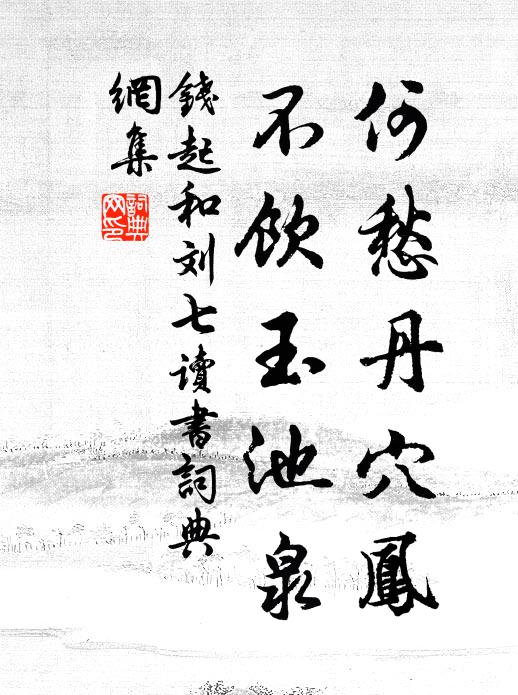 何愁丹穴鳳
不飲玉池泉
錢起和刘七讀書詞典
網集
詞典
网印